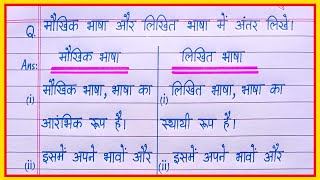 Q. मौखिक भाषा और लिखित भाषा में अंतर लिखे।
Ans: मौखिक भाषा लिखित भाषा
(i) मौखिक भाषा, भाषा का (i) लिखित भाषा, भाषा का
आरंभिक रूप है। स्थायी रूप है।
(ii) इसमें अपने भावों और (ii) इसमें अपने भावों और